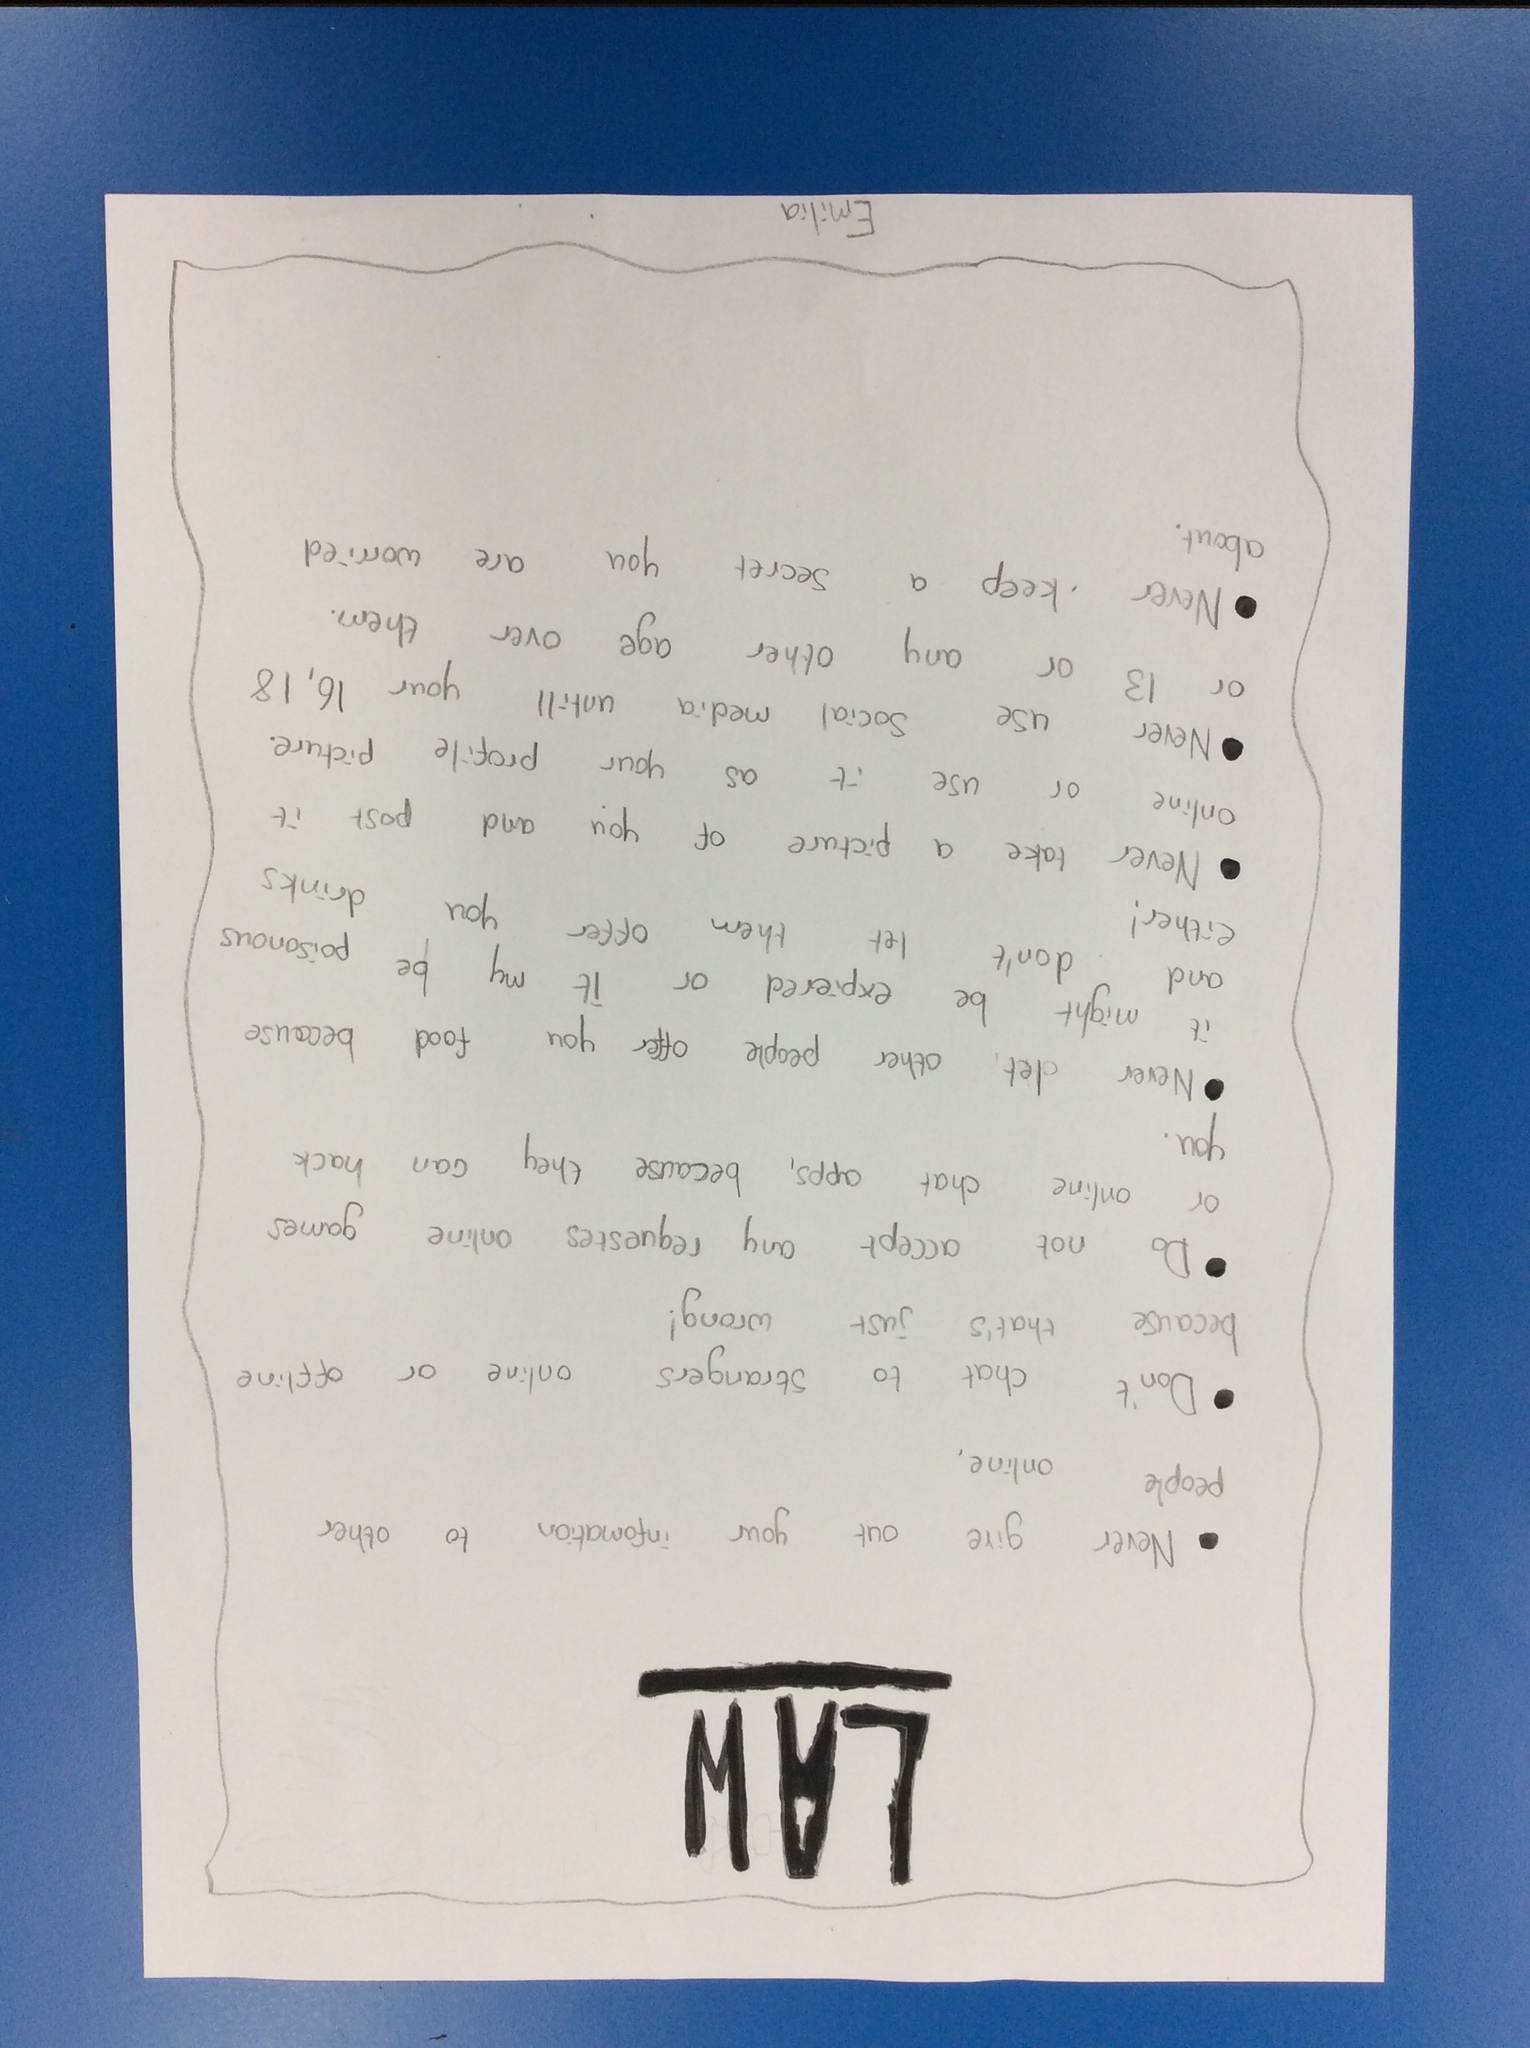 LAW
• Never give out your infomation to other
people online,
• Don't chat to strangers online or offline
because that's just wrong!
• Do not accept any requestes online games
or online chat apps, because they can hack
you.
• Never let other people offer you food because
it might be expiered or it my be poisonous
and don't let them offer you drinks
either!
• Never take a picture of you and post it
online or use it as your profile picture.
• Never use social media untill your 16, 18
or 13 or any other age over them.
• Never keep a secret you are worried
about.
Emilia